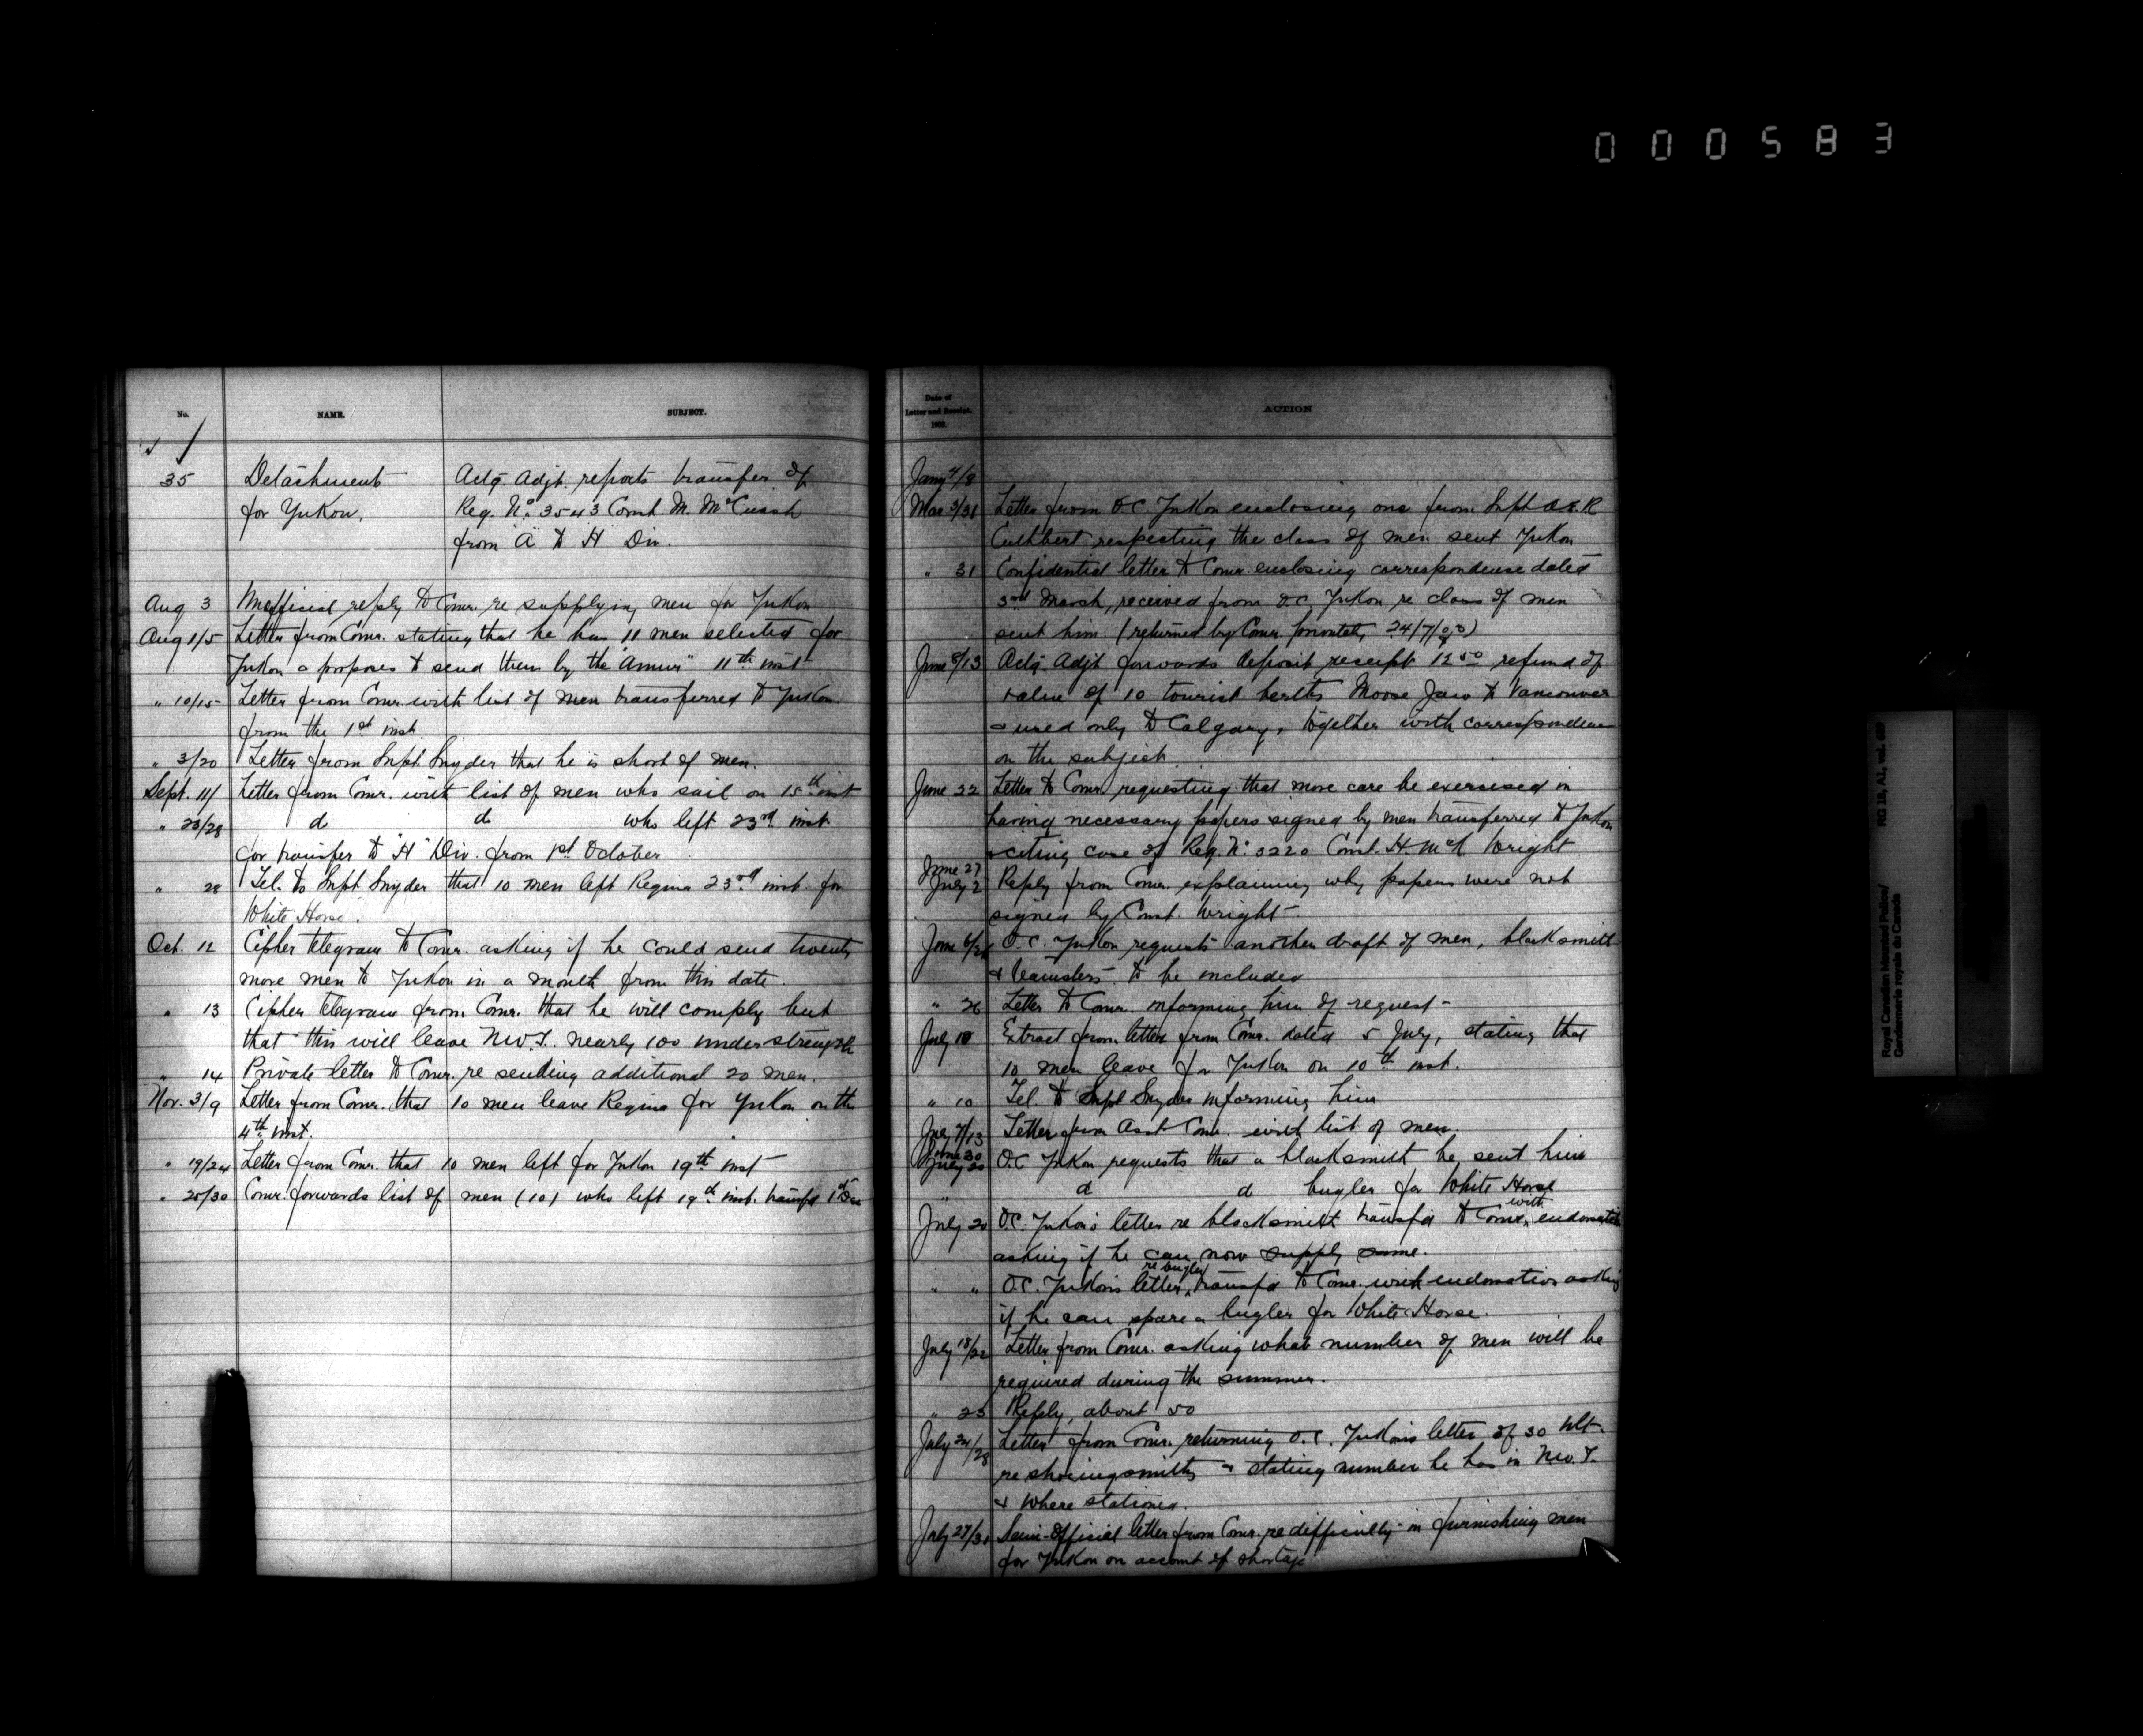 000583
No.
NAME.
SUBJECT.
35
Detachment
for Yukon.
Actg. Adjt. reports transfer of
Reg. No. 3543 Const. M. McCuish
from "A" to "H" Div.
Aug 3 Unofficial reply to Comr. re supplying men for Yukon
Aug 1/5 Letter from Comr. stating that he has 11 men selected for
Yukon & proposes to send them by the "Amur" 11th inst
" 10/15 Letter from Comr. with list of men transferred to Yukon
from the 1st inst.
" 3/20 Letter from Supt. Snyder that he is short of men.
Sept. 11/ Letter from Comr. with list of men who sail on 15th inst
" 23/28 do do who left 23rd inst.
for transfer to "H" Div. from 1st October
" 28 Tel. to Supt. Snyder that 10 men left Regina 23rd inst. for
White Horse.
Oct. 12 Cipher telegram to Comr. asking if he could send twenty
more men to Yukon in a month from this date.
" 13 Cipher telegram from Comr. that he will comply but
that this will leave N.W.T. nearly 100 under strength
" 14 Private letter to Comr. re sending additional 20 men.
Nov. 3/9 Letter from Comr. that 10 men leave Regina for Yukon on the
4th inst.
" 19/24 Letter from Comr. that 10 men left for Yukon 19th inst
" 25/30 Comr. forwards list of men (10) who left 19th inst. transfd 1st Dec
Date of
Letter and Receipt.
1903.
ACTION
Jany 4/8
Mar 3/31 Letter from O.C. Yukon enclosing one from Supt A.E.R.
Cuthbert respecting the class of men sent Yukon
" 31 Confidential letter to Comr. enclosing correspondence dated
3rd March, received from O.C. Yukon re class of men
sent him (returned by Comr. 24/7/03)
June 8/13 Actg. Adjt forwards deposit receipt 12.50 refund of
value of 10 tourist berths Moose Jaw to Vancouver
& used only to Calgary, together with correspondence
on the subject.
June 22 Letter to Comr. requesting that more care be exercised in
having necessary papers signed by men transferred to Yukon
& citing case of Reg. No. 3220 Const. H. McK Wright
June 27
July 2 Reply from Comr. explaining why papers were not
signed by Const. Wright
June 6/26 O.C. Yukon requests another draft of men, blacksmith
& teamsters to be included
" 26 Letter to Comr. informing him of request
July 10 Extract from letter from Comr. dated 5 July, stating that
10 men leave for Yukon on 10th inst.
" 10 Tel. to Supt Snyder informing him
July 7/13 Letter from Asst Comr. with list of men.
June 30
July 20 O.C. Yukon requests that a blacksmith be sent him
" do do bugler for White Horse
July 20 O.C. Yukon's letter re blacksmith transfd to Comr. with endorsation
asking if he can now supply same.
" " O.C. Yukon's letter re bugler transfd to Comr. with endorsation asking
if he can spare a bugler for White Horse.
July 18/22 Letter from Comr. asking what number of men will be
required during the summer.
" 23 Reply, about 50
July 24/28 Letter from Comr. returning O.C. Yukon's letter of 30 ult.
re shoeingsmiths & stating number he has in N.W.T.
& where stationed.
July 27/31 Semi-Official letter from Comr. re difficulty in furnishing men
for Yukon on account of shortage
Royal Canadian Mounted Police/
Gendarmerie royale du Canada
RG 18, A1, vol.